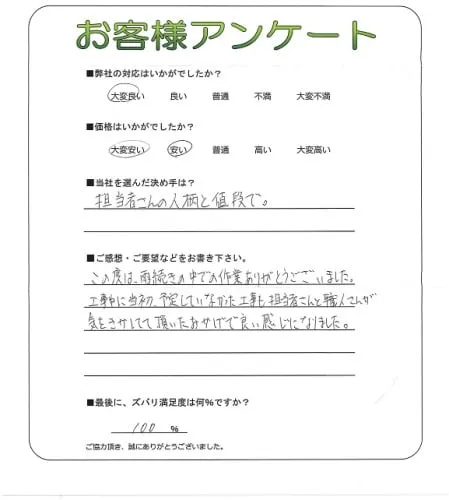 お客様アンケート
■弊社の対応はいかがでしたか?
大変良い 良い 普通 不満 大変不満
■価格はいかがでしたか?
大変安い 安い 普通 高い 大変高い
■当社を選んだ決め手は?
担当者さんの人柄と値段で。
■ご感想・ご要望などをお書き下さい。
この度は、雨続きの中での作業ありがとうございました。
工事中に当初、予定していなかった工事も、担当者さんと職人さんが
気をきかしてて頂いたおかげで良い感じになりました。
■最後に、ズバリ満足度は何%ですか?
100 %
ご協力頂き、誠にありがとうございました。